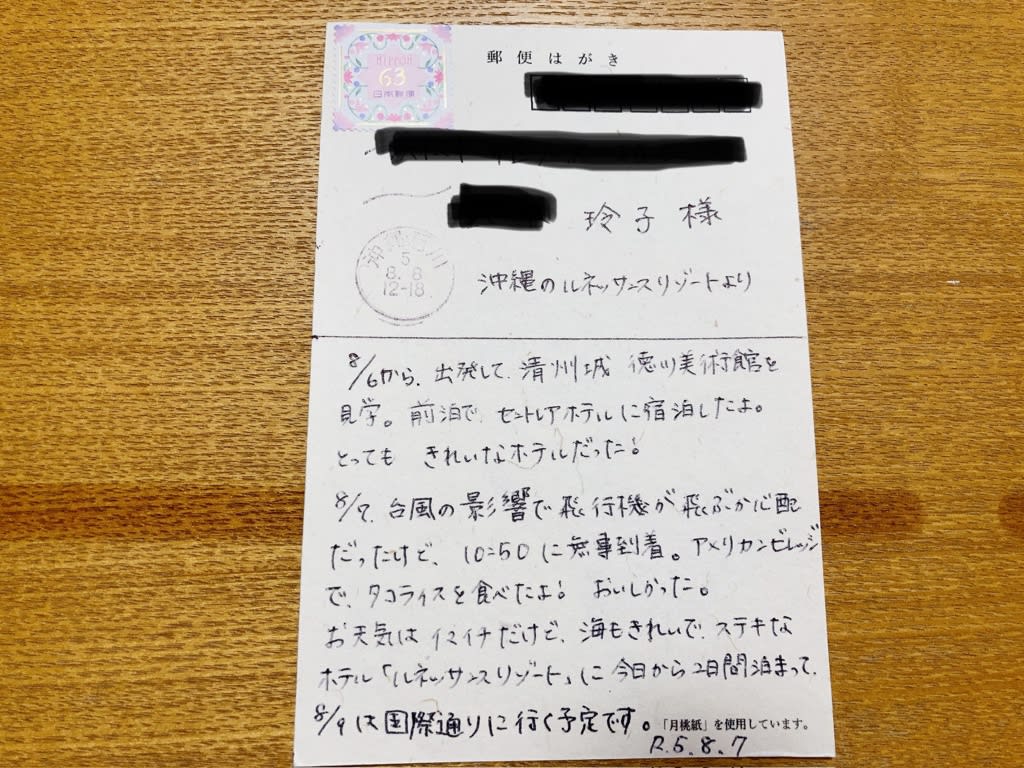 NIPPON
63
日本郵便
郵便はがき
玲子様
5
8.8
12-18
沖縄のルネッサンスリゾートより
8/6から、出発して、清州城 徳川美術館を
見学。前泊で、セントレアホテルに宿泊したよ。
とっても きれいなホテルだった!
8/7、台風の影響で飛行機が飛ぶか心配
だったけど、10:50に無事到着。アメリカンビレッジ
で、タコライスを食べたよ! おいしかった。
お天気はイマイチだけど、海もきれいで、ステキな
ホテル「ルネッサンスリゾート」に今日から2日間泊まって、
8/9は国際通りに行く予定です。
「月桃紙」を使用しています。
R.5.8.7